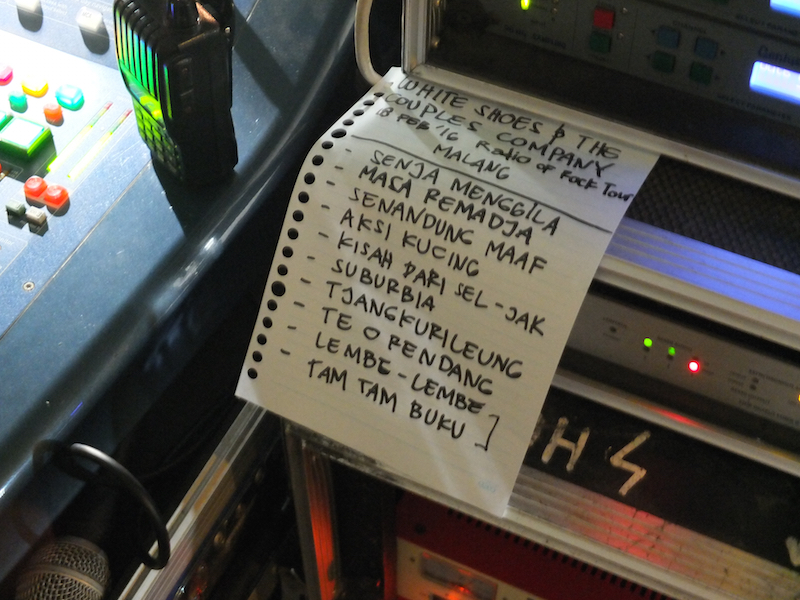 WHITE SHOES & THE
COUPLES COMPANY
18 FEB '16 Radio of Rock Tour
MALANG
- SENJA MENGGILA
- MASA REMADJA
- SENANDUNG MAAF
- AKSI KUCING
- KISAH DARI SEL-JAK
- SUBURBIA
- TJANGKURILEUNG
- TE O RENDANG
- LEMBE-LEMBE
- TAM TAM BUKU ]